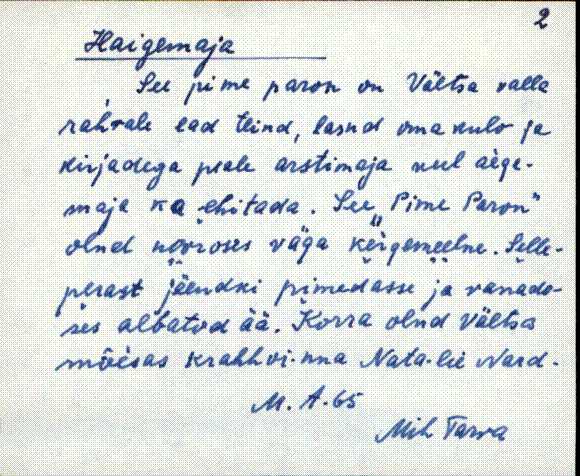 2
Haigemaja
See pime paron on Vältsa valla
rahvale ead teind, lasnd oma kulo ja
kirjadega peale arstimaja veel äege-
maja ka ehitada. See "Pime Paron"
olnd nooroses väga kergemeelne. Selle-
perast jäendki pimedasse ja vanado-
ses albatod ää. Korra olnd Vältsa
mõesas krahhvi-nna Nata-lie Nard-
M. A. 65
Mih Tarva